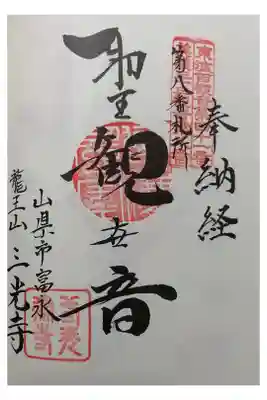 奉納経
第八番札所
聖観世音
山県市富永
龍王山 三光寺